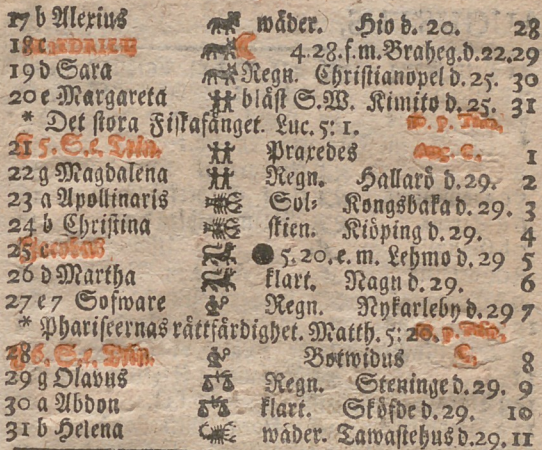 17 b Alexius wäder. Hio d. 20. 28
18 c FREDRICH 4.28.f.m. Braheg. d. 22. 29
19 d Sara Regn. Christianopel d. 25. 30
20 e Margareta blåst S.W. Kimito d. 25. 31
* Det stora Fiskafånget. Luc. 5: 1.
21 F 5. S. e. Trin. Praxedes Aug. C. 1
22 g Magdalena Regn. Hallarö d. 29. 2
23 a Apollinaris Sol- Kongsbaka d. 29. 3
24 b Christina skien. Kiöping d. 29. 4
25 c Jacobus 5.20.e.m. Lehmo d. 29 5
26 d Martha klart. Nagu d. 29. 6
27 e 7 Sofware Regn. Nykarleby d. 29 7
* Phariseernas rättfärdighet. Matth. 5: 20.
28 F 6. S. e. Trin. Botwidus C. 8
29 g Olavus Regn. Steninge d. 29. 9
30 a Abdon klart. Sköfde d. 29. 10
31 b Helena wäder. Tawastehus d. 29. 11